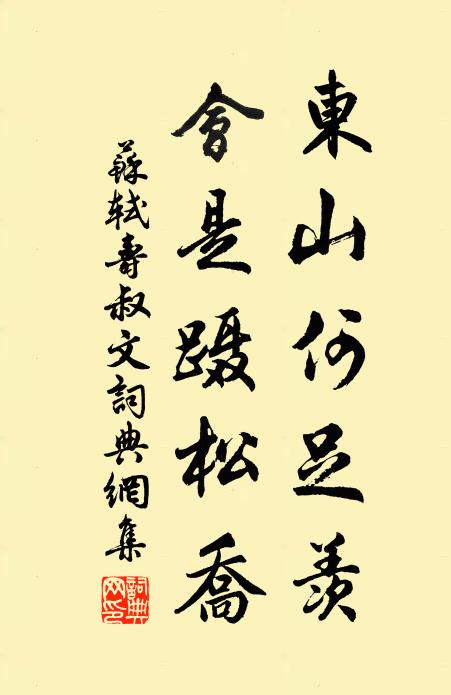 東山何足羨
會是蹑松喬
蘇軾壽叔文詞典網集
詞典
网印